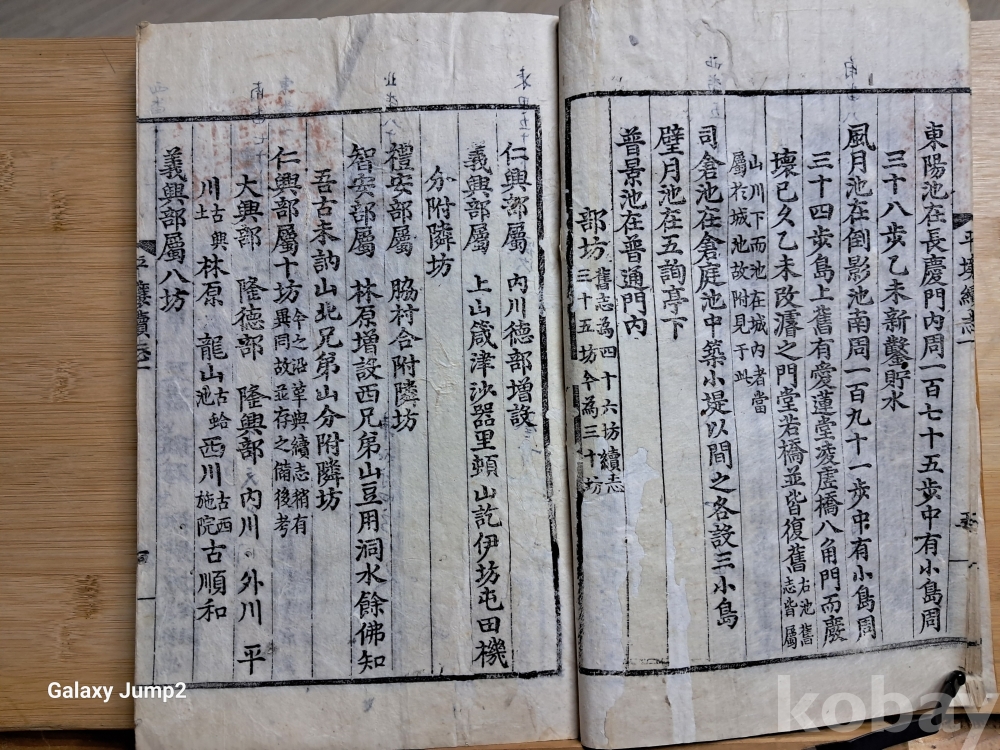 東陽池在長慶門內周一百七十五步中有小島周
三十八步乙未新鑿貯水
風月池在倒影池南周一百九十一步中有小島周
三十四步島上舊有愛蓮堂凌虛橋八角門而嚴
壞已久乙未改濬之門堂若橋並皆復舊右池舊志皆屬
山川下而池在城內者當
屬於城池故附見于此
司倉池在倉庭池中築小堤以間之各設三小島
璧月池在五詢亭下
普景池在普通門內
部坊舊志為四十六坊續志
三十五坊今為三十坊
仁興部屬 內川德部增設
義興部屬 上山箴津沙器里頓山訖伊坊屯田機
分附隣坊
禮安部屬 脇村合附隣坊
智安部屬 林原增設西兄弟山豆用洞水餘佛知
吾古未訥山北兄弟山分附隣坊
仁興部屬十坊今之沿革與續志稍有
異同故並存之備後考
大興部 隆德部 隆興部 內川 外川 平
川古興土林原 龍山古蛤池西川古西施院古順和
義興部屬八坊
平壤續志一
平壤續志一
Galaxy Jump2
kobay